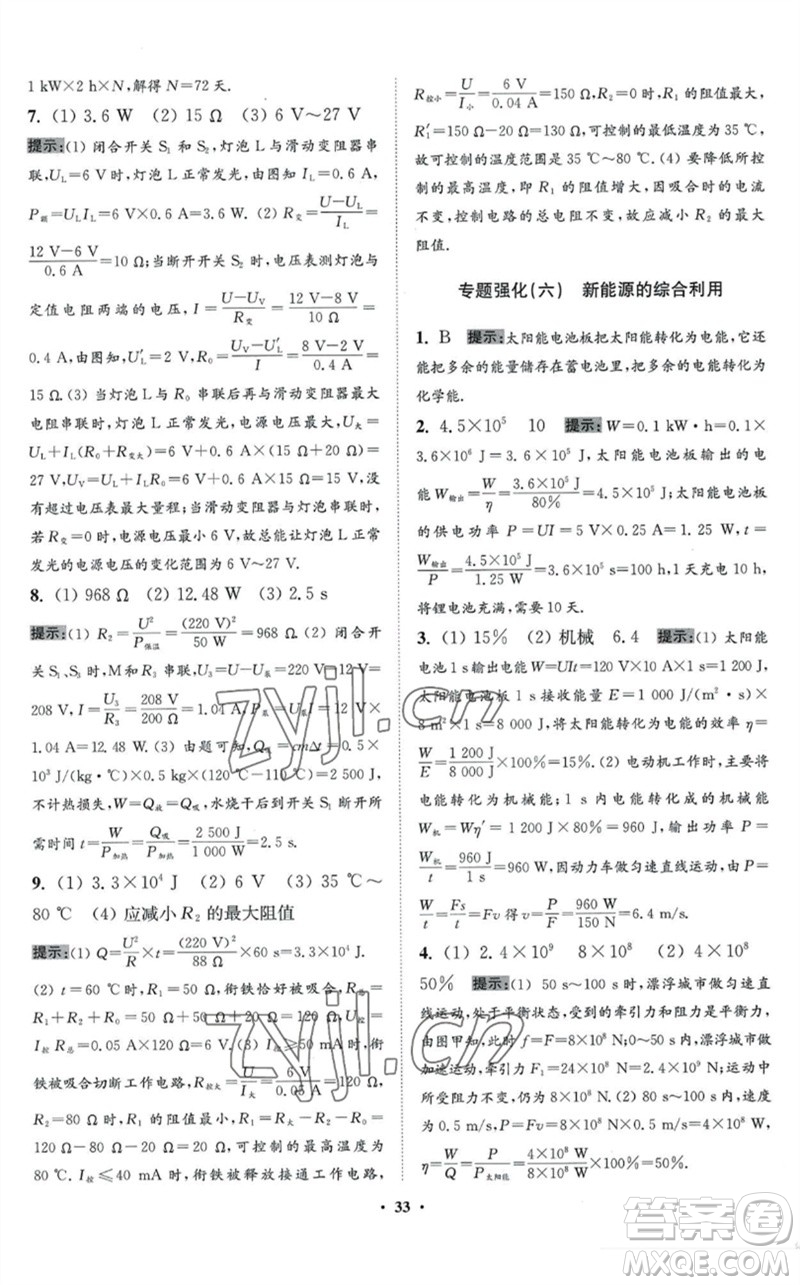 1 kW×2 h×N,解得 N=72 天.
7. (1) 3.6 W (2) 15 Ω (3) 6 V～27 V
提示:(1) 闭合开关 S₁ 和 S₂,灯泡 L 与滑动变阻器串
联,U_L=6 V 时,灯泡 L 正常发光,由图知 I_L=0.6 A,
P_额=U_L I_L=6 V×0.6 A=3.6 W. (2) R_变=(U−U_L)/I_L=
(12 V−6 V)/0.6 A=10 Ω;当断开开关 S₂ 时,电压表测灯泡与
定值电阻两端的电压,I=(U−U_V)/R_变=(12 V−8 V)/10 Ω=
0.4 A,由图知,U′_L=2 V,R₀=(U_V−U′_L)/I=(8 V−2 V)/0.4 A=
15 Ω. (3) 灯泡 L 与 R₀ 串联后再与滑动变阻器最大
电阻串联时,灯泡正常发光,电源电压最大,U_大=
U_L+I_L(R₀+R_变大)=6 V+0.6 A×(15 Ω+20 Ω)=
27 V,U_V=U_L+U₀=6 V+0.6 A×15 Ω=15 V,没有
超过电压表最大量程.灯泡与滑动变阻器串联时,
若 R_变=0 时,电源电压为 6 V,故总能让灯泡正常发
光的电源电压的变化范围为 6 V～27 V.
8. (1) 968 Ω (2) 12.48 W (3) 2.5 s
提示:(1) R₂=U²/P_保温=(220 V)²/50 W=968 Ω. (2) 闭合开
关 S₁、S₃ 时,M 和 R₃ 串联,U₃=U−U_泵=220 V−12 V=
208 V,I=U₃/R₃=208 V/200 Ω=1.04 A,P_泵=U_泵I=12 V×
1.04 A=12.48 W. (3) 由题可知,Q_吸=cmΔt=0.5×
10³ J/(kg·℃)×0.5 kg×(120 ℃−110 ℃)=2 500 J,
不计热损失,W=Q_放=Q_吸,水烧干后开关 S₁ 断开所
需时间 t=W/P_加热=Q_吸/P_加热=2 500 J/1 000 W=2.5 s.
9. (1) 3.3×10⁴ J (2) 6 V (3) 35 ℃～
80 ℃ (4) 应减小 R₂ 的最大阻值
提示:(1) Q=U²/R×t=(220 V)²/88 Ω×60 s=3.3×10⁴ J.
(2) t=60 ℃时,R₁=50 Ω,衔铁恰好被吸合,R_总=
R₁+R₂+R₀=50 Ω+50 Ω+20 Ω=120 Ω,U=
I_控R_总=0.05 A×120 Ω=6 V. (3) I_控≥50 mA 时,衔
铁被吸合切断工作电路,R_控大=U/I_大=6 V/0.05 A=120 Ω,
R₂=0 Ω 时,R₁ 的阻值最大,R₁=R_大−R₀=
120 Ω−20 Ω=100 Ω,可控制的最高温度为
80 ℃. I_控≤40 mA 时,衔铁被释放接通工作电路,
R_控小=U/I_小=6 V/0.04 A=150 Ω,R₂=0 时,R₁ 的阻值最大,
R′₁=150 Ω−20 Ω=130 Ω,可控制的最低温度为 35 ℃,
故可控制的温度范围是 35 ℃～80 ℃. (4) 要降低所控
制的最高温度,即 R₁ 的阻值增大,因吸合时的电流
不变,控制电路的总电阻不变,故应减小 R₂ 的最大
阻值.
专题强化(六) 新能源的综合利用
1. B 提示:太阳能电池板把太阳能转化为电能,它还
能把多余的能量储存在蓄电池里,把多余的电能转化为
化学能.
2. 4.5×10⁵ 10 提示:W=0.1 kW·h=0.1×
3.6×10⁶ J=3.6×10⁵ J,太阳能电池板输出的电
能 W_输出=W/η=3.6×10⁵ J/80%=4.5×10⁵ J.太阳能电池板
的供电功率 P=UI=5 V×0.25 A=1.25 W,t=
W_输出/P=4.5×10⁵ J/1.25 W=3.6×10⁵ s=100 h,1 天充电 10 h,
将锂电池充满,需要 10 天.
3. (1) 15% (2) 机械 6.4 提示:(1) 太阳能
电池 1 s 输出电能 W=UIt=120 V×10 A×1 s=1 200 J,
太阳能电池板 1 s 内接收的太阳能 E=1 000 J/(m²·s)×
8 m²×1 s=8 000 J,将太阳能转化为电能的效率 η=
W/E=1 200 J/8 000 J×100%=15%. (2) 电动机工作时,主要
将电能转化为机械能;1 s 内电能转化成的机械能
W_机=Wη′=1 200 J×80%=960 J,电动机的功率 P=
W_机/t=960 J/1 s=960 W,因为动力车做匀速直线运动,由
P=W/t=Fs/t=Fv 得 v=P/F=960 W/150 N=6.4 m/s.
4. (1) 2.4×10⁹ 8×10⁸ (2) 4×10⁸
50% 提示:(1) 50 s～100 s 时,漂浮城市做匀速直
线运动,处于平衡状态,所受的牵引力和阻力是平衡力,
由图像可知,此时 f=F=8×10⁸ N;0～50 s,漂浮城市做
加速运动,牵引力 F=24×10⁸ N=2.4×10⁹ N,运动中
所受阻力不变,仍为 8×10⁸ N. (2) 80 s 时,v=
0.5 m/s,P=Fv=8×10⁸ N×0.5 m/s=4×10⁸ W,
η=P/P_太阳能=4×10⁸ W/8×10⁸ W×100%=50%.
· 33 ·
zyjl.cn
zyjl.cn
答案卷
MXQE.COM